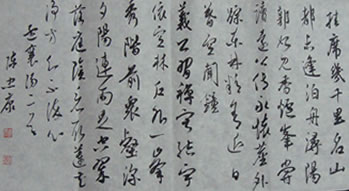 挂席幾千里名山
都未逢泊舟潯陽
郭始見香爐峯嘗
讀遠公傳永懷塵外
蹤東林精舍近日
暮空聞鐘
義公習禪寂結宇
依空林戶外一峯
秀階前衆壑深
夕陽連雨足空翠
落庭陰看取蓮花
淨方知不染心
孟襄陽二首
陳忠康